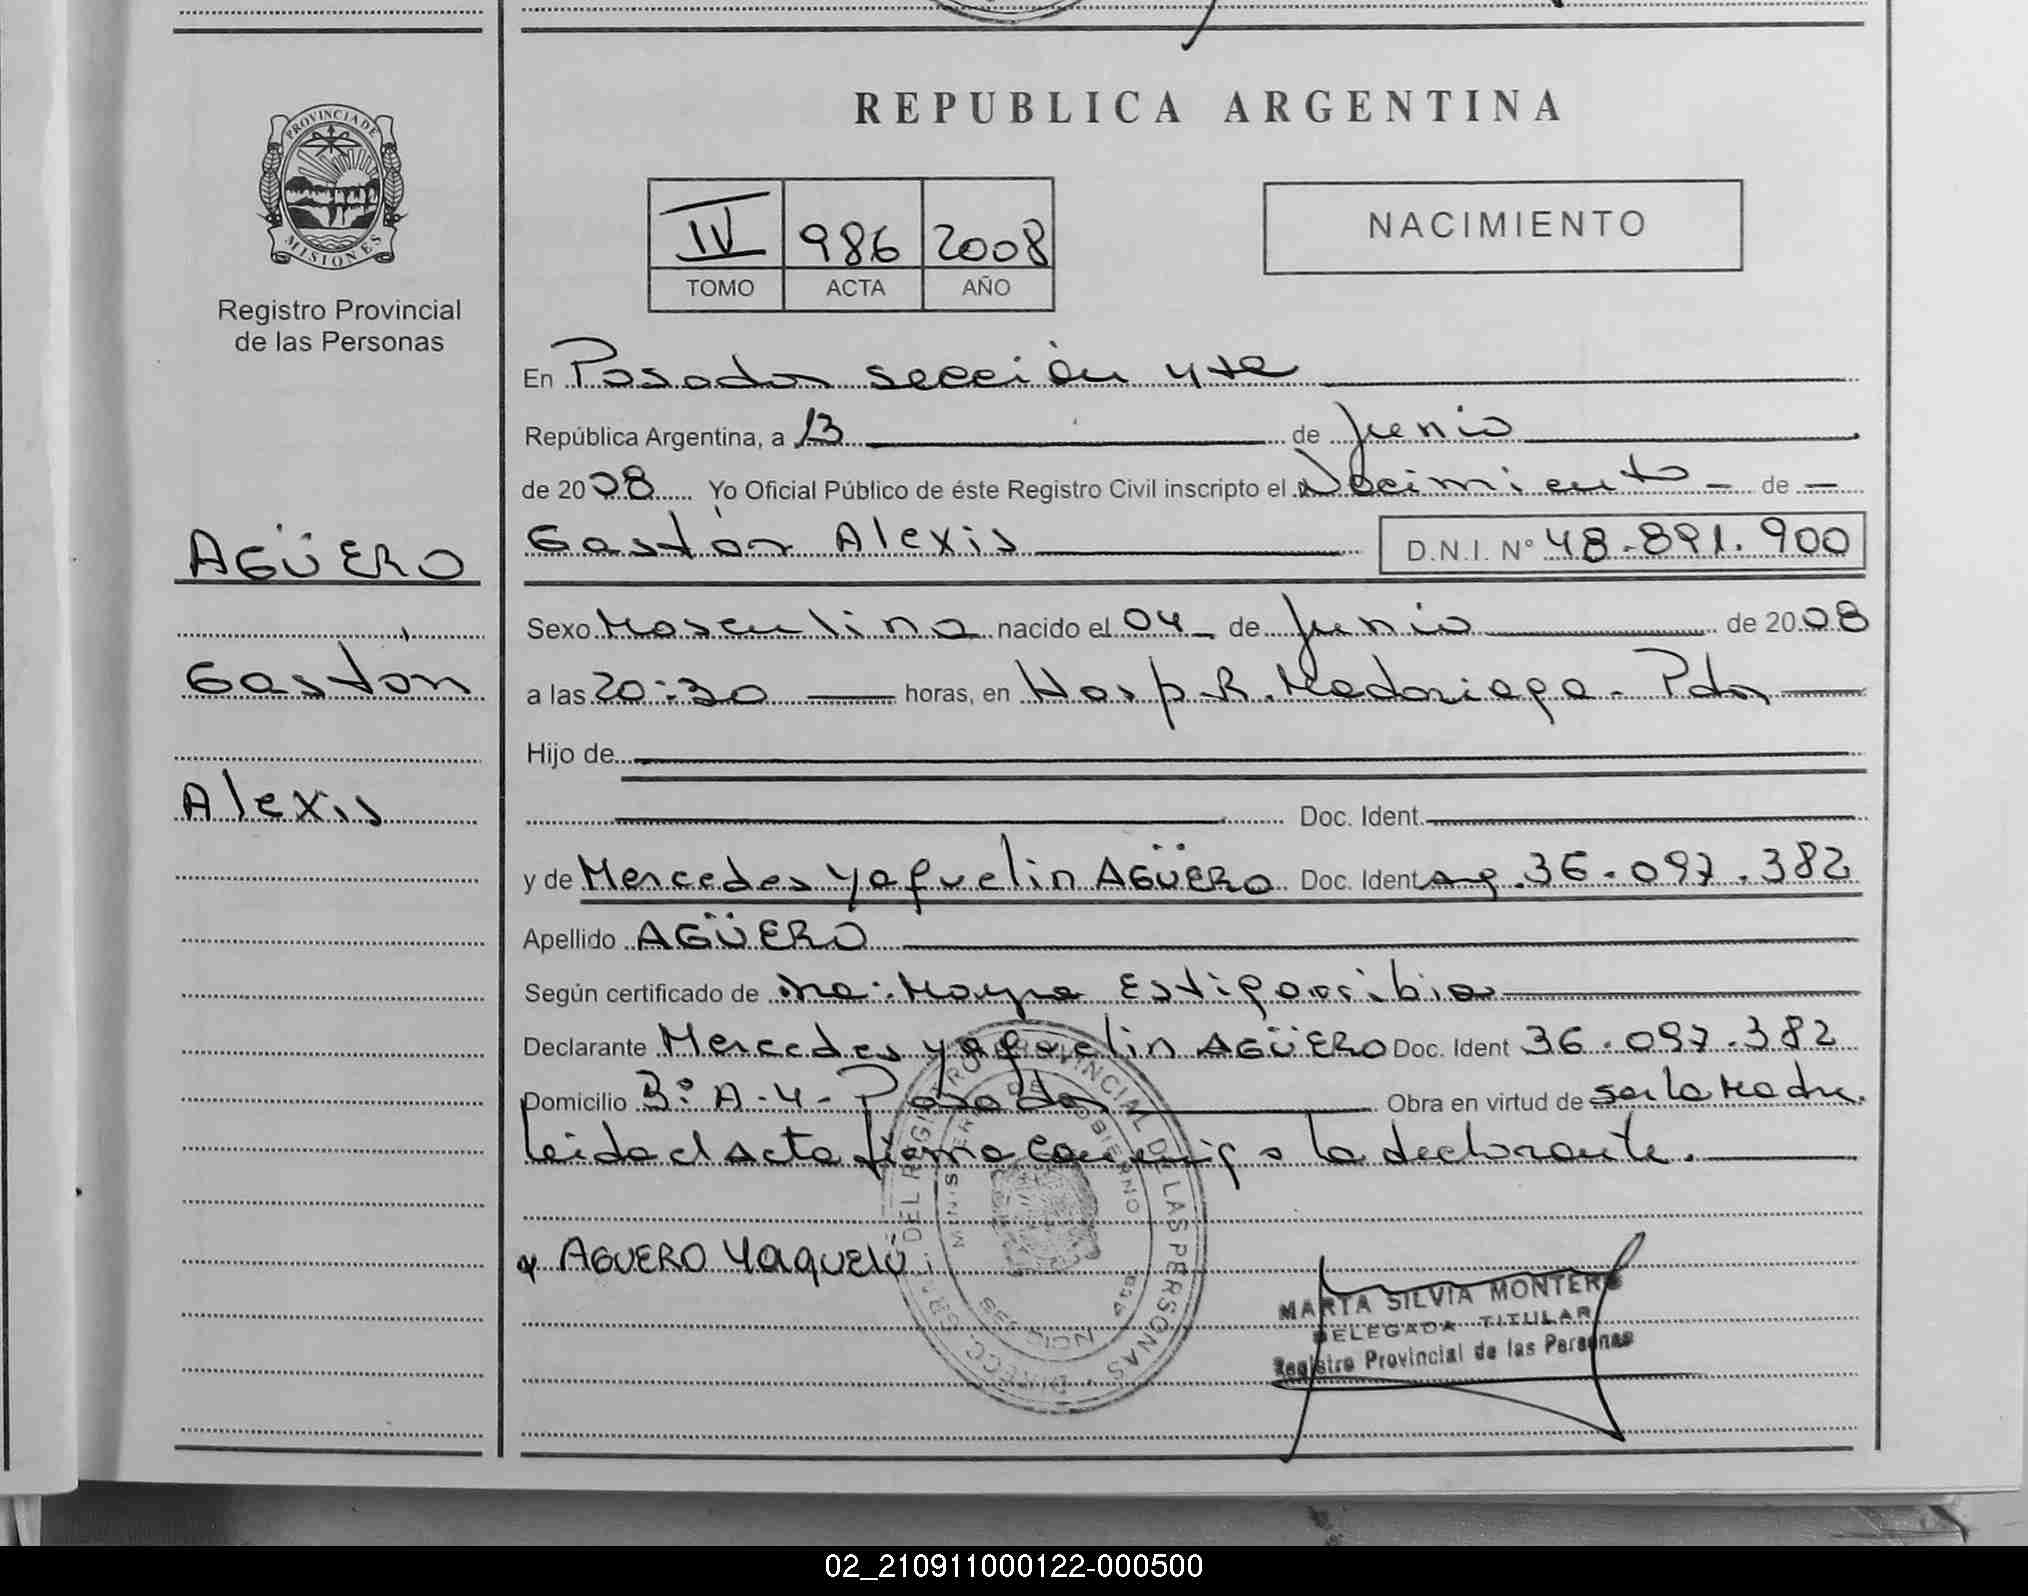 REPUBLICA ARGENTINA
PROVINCIA DE
MISIONES
Registro Provincial
de las Personas
IV 986 2008
TOMO ACTA AÑO
NACIMIENTO
AGÜERO
Gastón
Alexis
En Posadas sección 4ta
República Argentina, a 13 de Junio
de 2008 Yo Oficial Público de éste Registro Civil inscripto el Nacimiento - de -
Gastón Alexis D.N.I. N° 48.891.900
Sexo Masculino nacido el 04 de Junio de 2008
a las 20:30 horas, en Hosp. R. Madariaga - Pdas
Hijo de
Doc. Ident.
y de Mercedes Yaquelin AGÜERO Doc. Ident Arg. 36.097.382
Apellido AGÜERO
Según certificado de Mayra Estigarribia
Declarante Mercedes Yaquelin AGÜERO Doc. Ident 36.097.382
Domicilio B° A-4- Posadas Obra en virtud de ser la Madre.
Leida el Acta firma conmigo la declarante.
AGUERO Yaquelin
DIRECC. GRAL. DEL REGISTRO PROVINCIAL DE LAS PERSONAS
MINISTERIO DE GOBIERNO
MARTA SILVIA MONTERO
DELEGADA TITULAR
Registro Provincial de las Personas
02_210911000122-000500